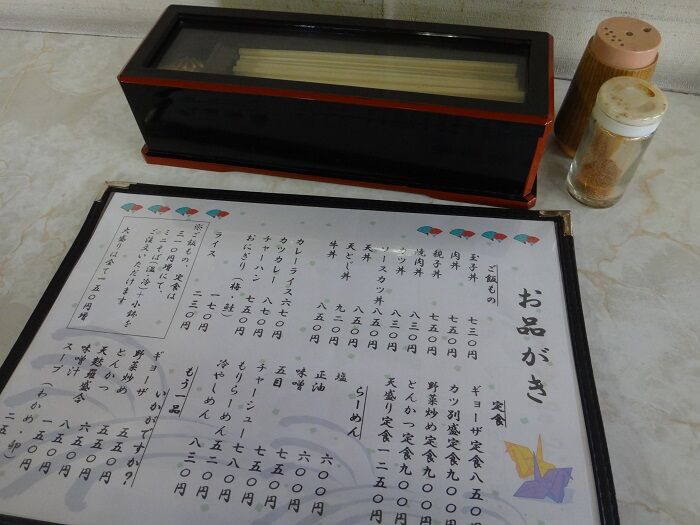 お品がき
ご飯もの
玉子丼 七三〇円
肉丼 七五〇円
親子丼 七五〇円
焼肉丼 八三〇円
カツ丼 八三〇円
ソースカツ丼 八五〇円
天丼 八五〇円
天とじ丼 九二〇円
牛丼 八五〇円
カレーライス 六七〇円
カツカレー 八七〇円
チャーハン 七五〇円
おにぎり（梅・鮭） 一七〇円
ライス 二三〇円
※ご飯もの、定食は
三一〇円増にて、
ミニそば（温・冷）＋小鉢を
ご注文いただけます
大盛りは全て一五〇円増
定食
ギョーザ定食 八五〇円
カツ別盛定食 九〇〇円
野菜炒め定食 九〇〇円
とんかつ定食 九〇〇円
天盛り定食 一二五〇円
らーめん
塩 六〇〇円
正油 六〇〇円
味噌 七五〇円
五目 七五〇円
チャーシュー 七八〇円
もりらーめん 五二〇円
冷やしめん 八三〇円
もう一品
いかがですか？
ギョーザ 五五〇円
野菜炒め 五五〇円
とんかつ 六五〇円
天麩羅盛合 八五〇円
味噌汁 一五〇円
スープ（わかめ・卵 二五